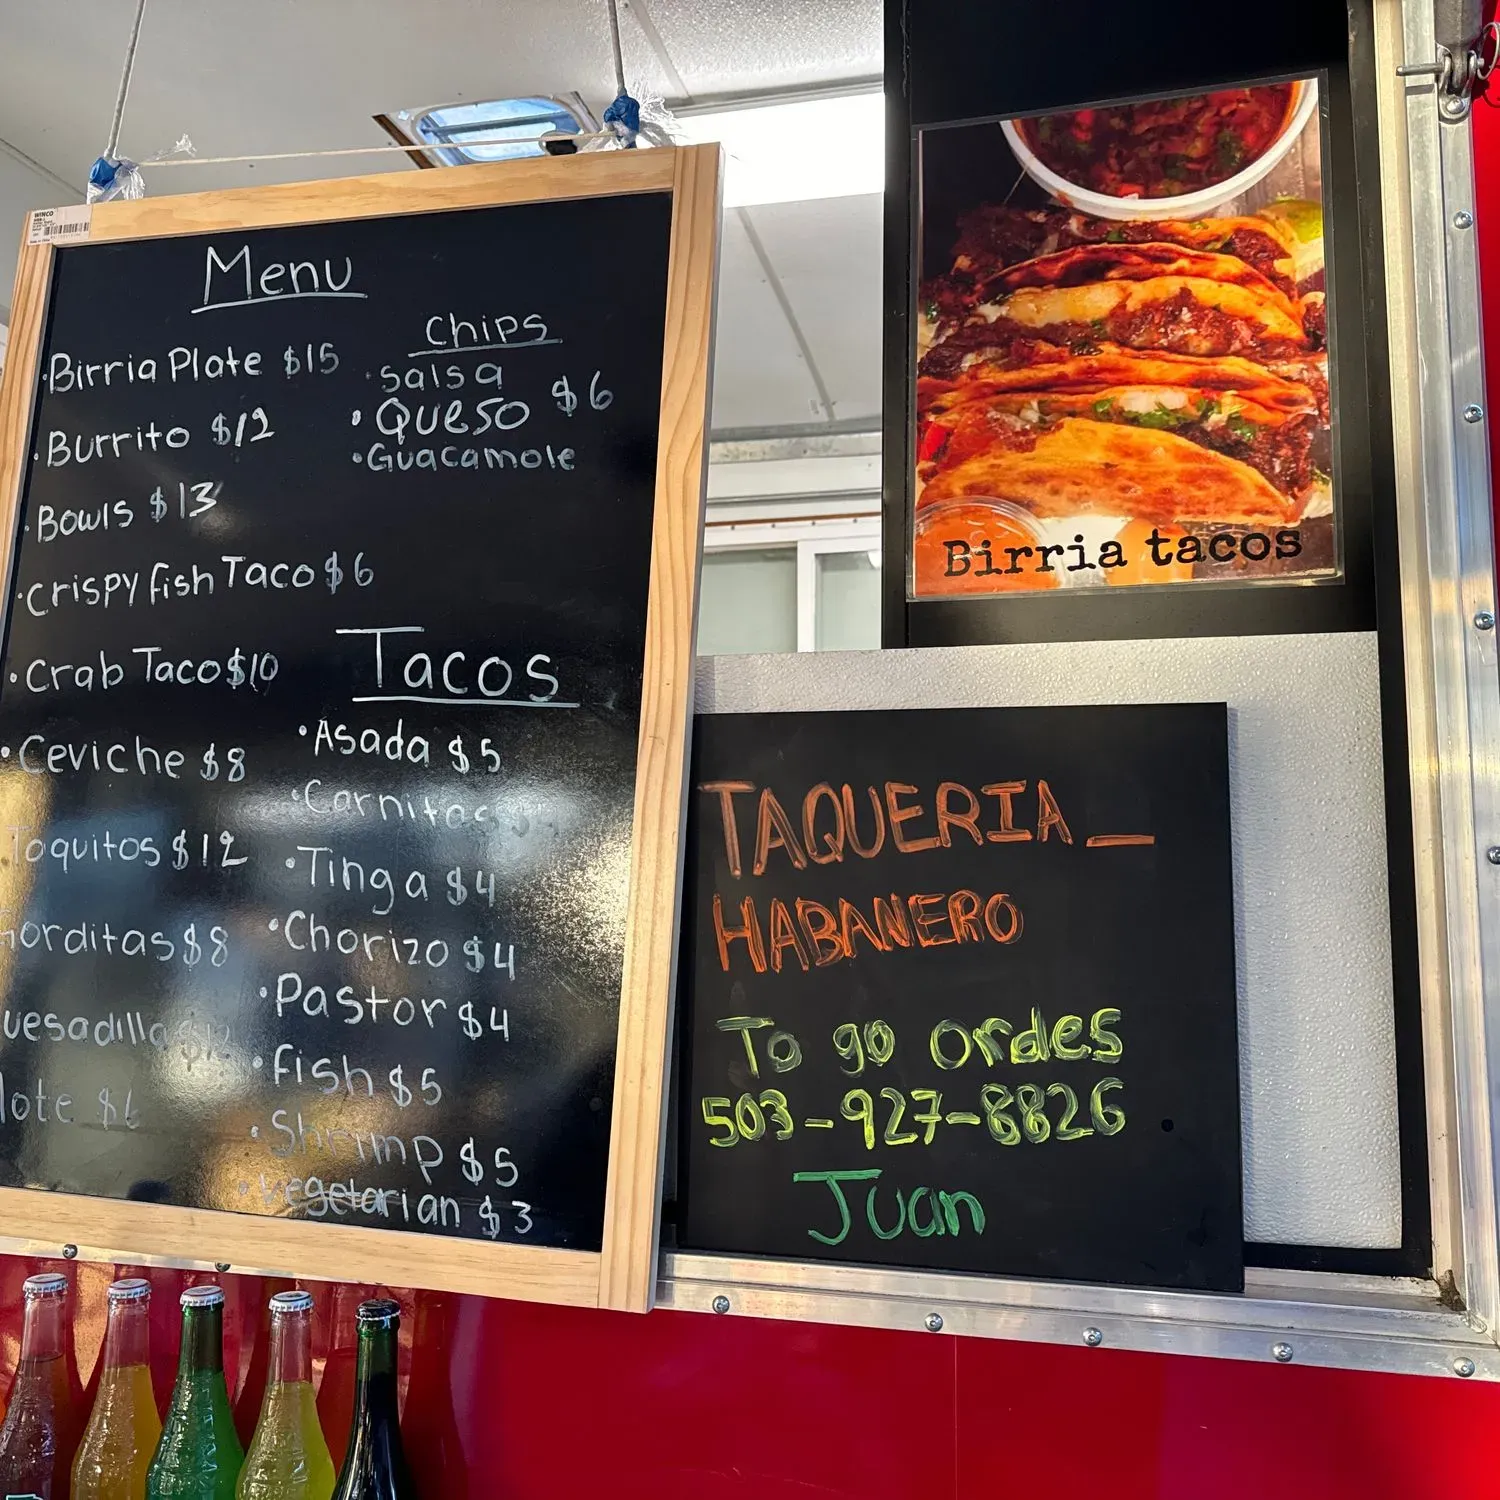 WINCO
Menu
· Birria Plate $15
· Burrito $12
· Bowls $13
· Crispy fish Taco $6
· Crab Taco $10
· Ceviche $8
· Toquitos $12
Gorditas $8
uesadilla $12
lote $6
Chips
· Salsa
· Queso $6
· Guacamole
Tacos
· Asada $5
· Carnitas
· Tinga $4
· Chorizo $4
· Pastor $4
· Fish $5
· Shrimp $5
· Vegetarian $3
Birria tacos
TAQUERIA_
HABANERO
To go ordes
503-927-8826
Juan